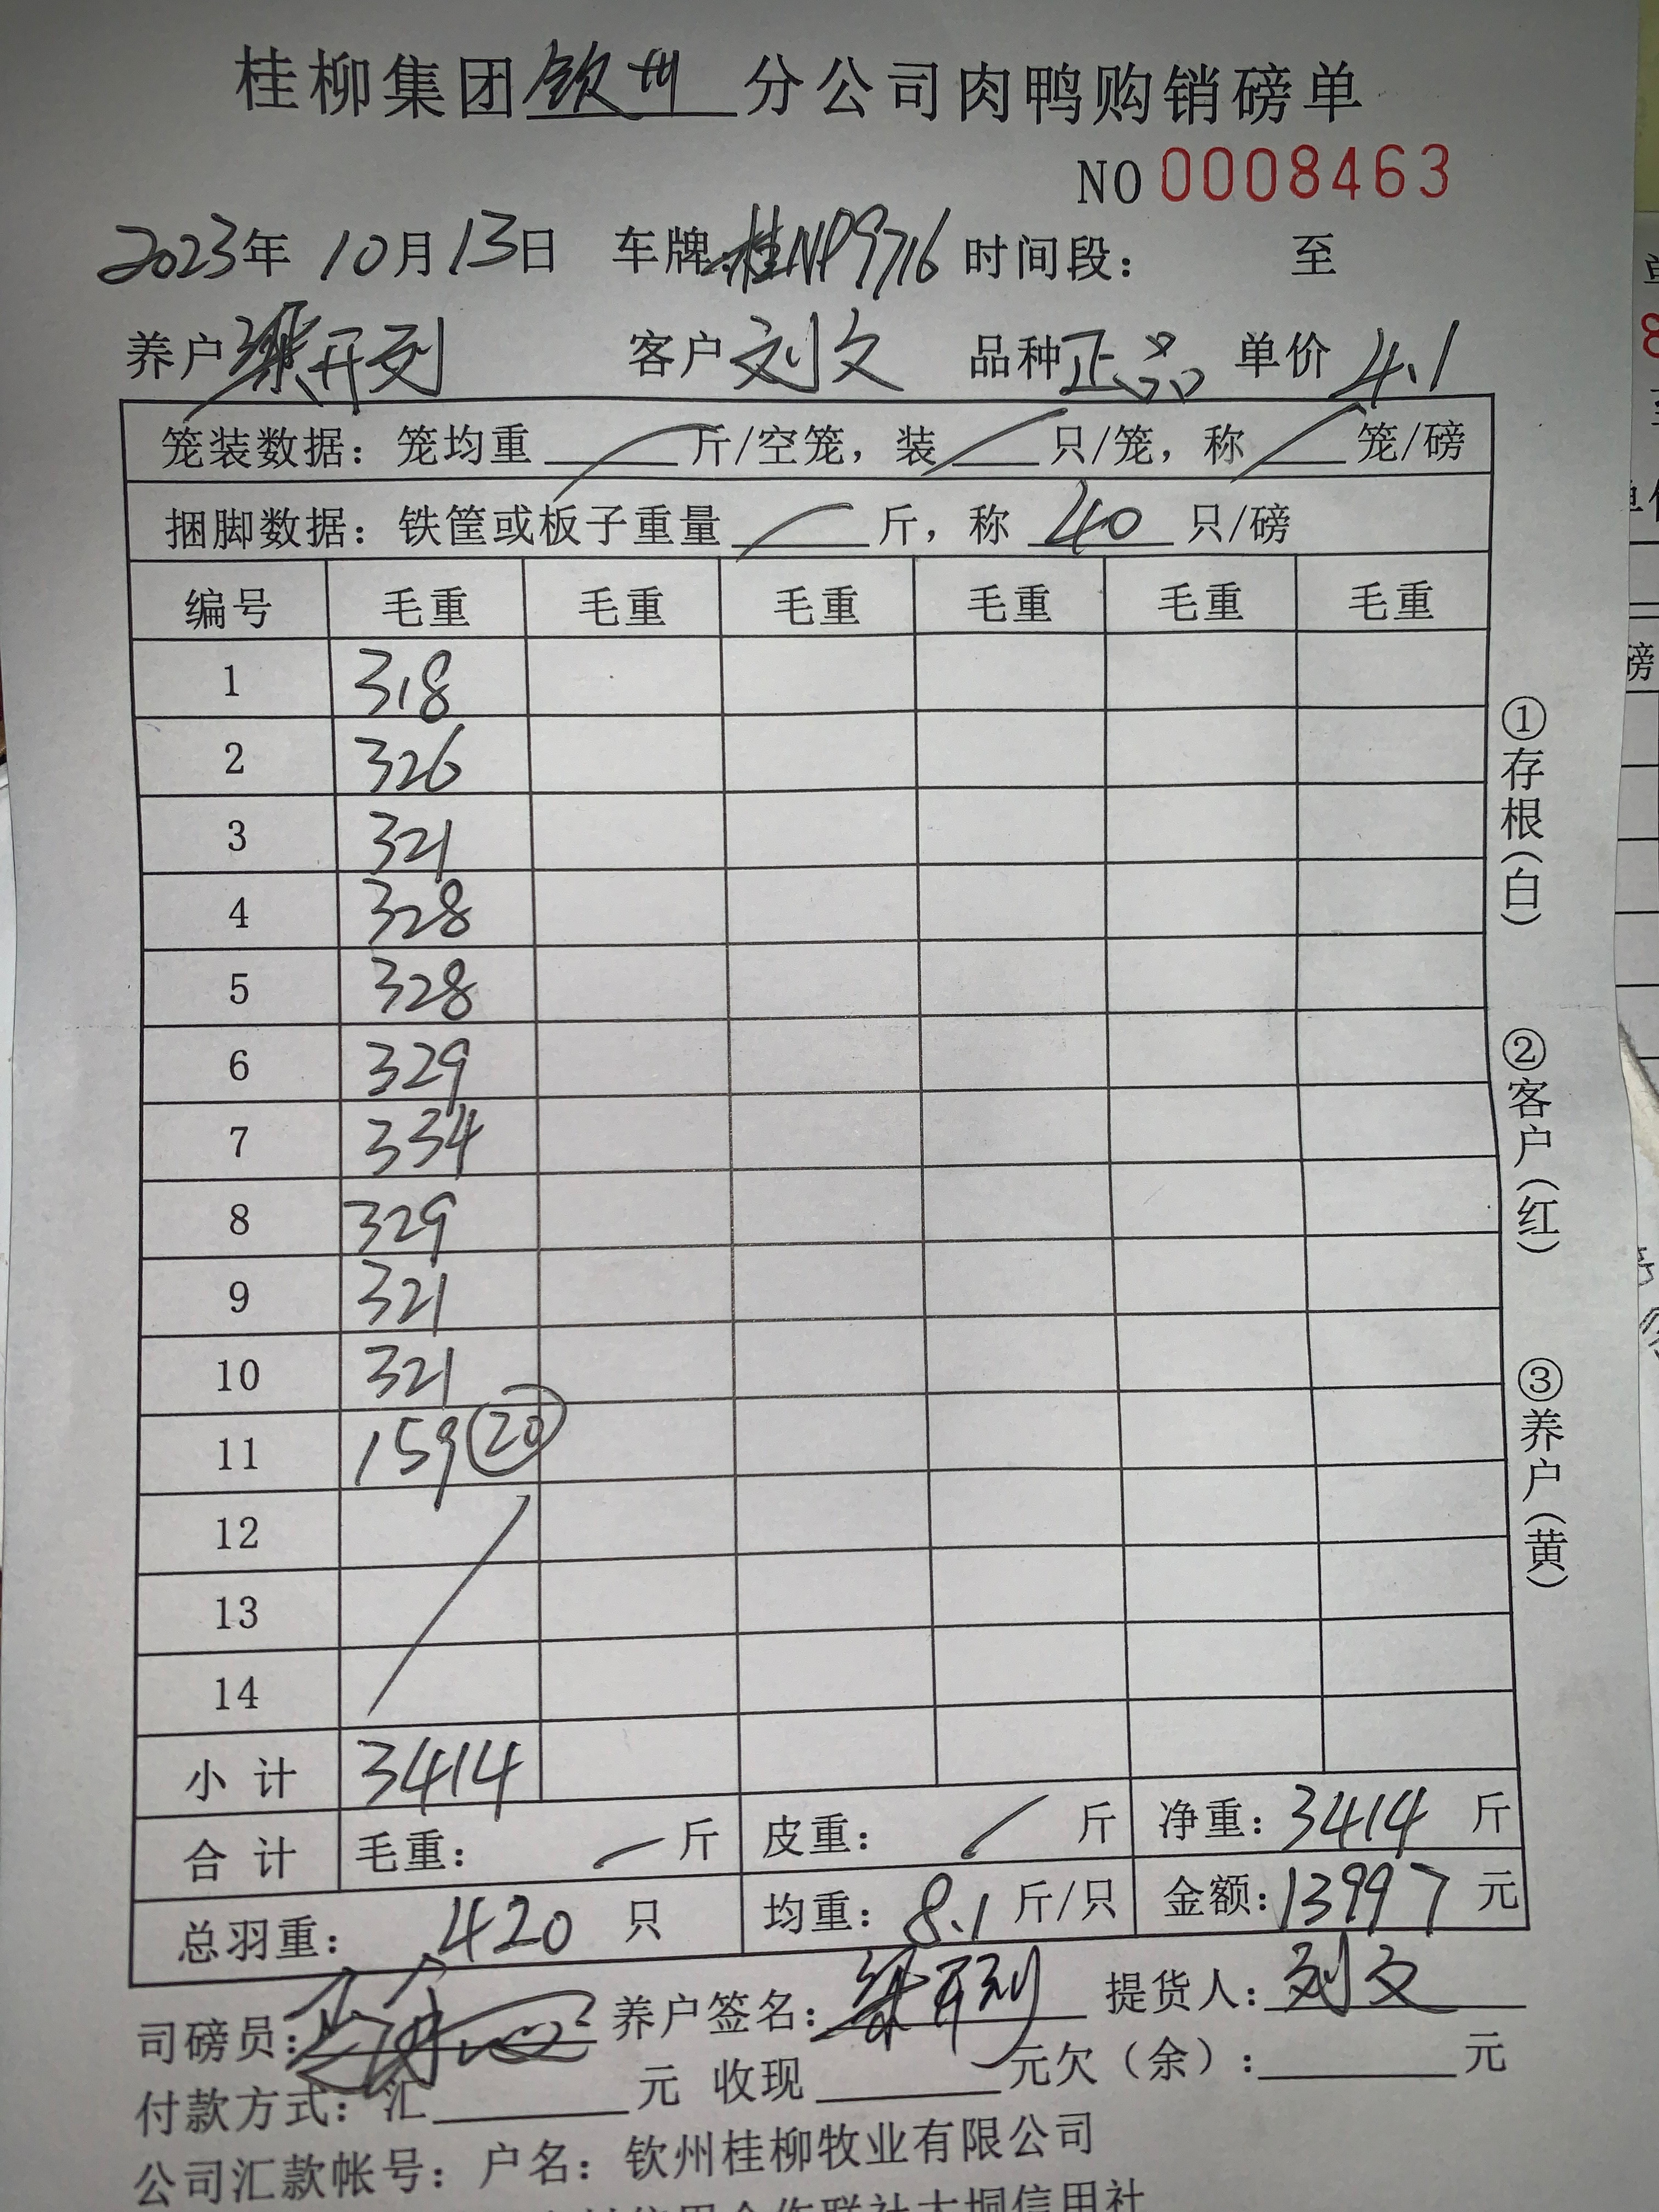 桂柳集团钦州分公司肉鸭购销磅单
NO 0008463
2023年 10月13日 车牌:桂NP9716 时间段: 至
养户 梁开列 客户 刘文 品种 正品 单价 4.1
笼装数据: 笼均重 斤/空笼, 装 只/笼, 称 笼/磅
捆脚数据: 铁筐或板子重量 斤, 称 40 只/磅
编号 毛重 毛重 毛重 毛重 毛重 毛重
1 318
2 326
3 321
4 328
5 328
6 329
7 334
8 329
9 321
10 321
11 159 20
12
13
14
小计 3414
合计 毛重: 斤 皮重: 斤 净重: 3414 斤
总羽重: 420 只 均重: 8.1 斤/只 金额: 13997 元
司磅员: 养户签名: 梁开列 提货人: 刘文
付款方式: 汇 元 收现 元欠(余): 元
公司汇款帐号: 户名: 钦州桂柳牧业有限公司
①存根(白)
②客户(红)
③养户(黄)